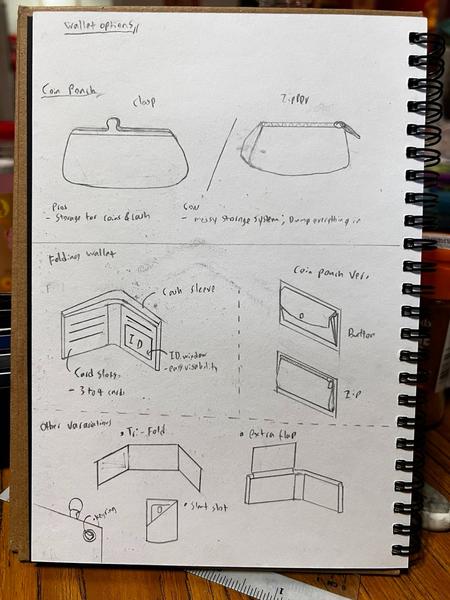 Wallet options
Coin Pouch
Clasp
Zipper
Pros
- Storage for coins & cash
Con
- messy storage system, Dump everything in
Folding wallet
Cash sleeve
ID
ID window
- easy visability
Card slots
- 3 to 4 cards
Coin pouch ver.
Button
Zip
Other vararations
• Tri-Fold
• extra flap
• keyring
• slant slot